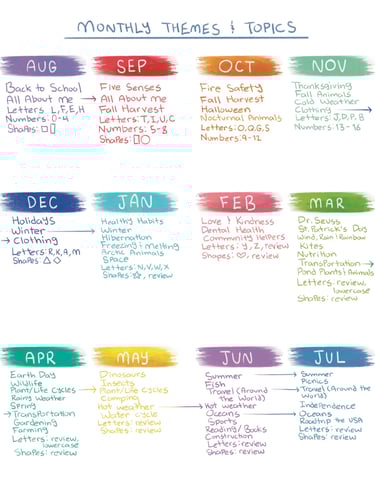 MONTHLY THEMES & TOPICS
AUG
Back to School
All About me
Letters: L, F, E, H
Numbers: 0-4
Shapes:
SEP
Five Senses
All About me
Fall Harvest
Letters: T, I, U, C
Numbers: 5-8
Shapes:
OCT
Fire Safety
Fall Harvest
Halloween
Nocturnal Animals
Letters: O, Q, G, S
Numbers: 9-12
NOV
Thanksgiving
Fall Animals
Cold Weather
Clothing
Letters: J, D, P, B
Numbers: 13-16
DEC
Holidays
Winter
Clothing
Letters: R, K, A, M
Shapes:
JAN
Healthy Habits
Winter
Hibernation
Freezing & Melting
Arctic Animals
Space
Letters: N, V, W, X
Shapes: , review
FEB
Love & Kindness
Dental Health
Community Helpers
Letters: Y, Z, review
Shapes: , review
MAR
Dr. Seuss
St. Patrick's Day
Wind, Rain & Rainbow
Kites
Nutrition
Transportation
Pond Plants & Animals
Letters: review,
lowercase
Shapes: review
APR
Earth Day
Wildlife
Plant/Life Cycles
Rainy Weather
Spring
Transportation
Gardening
Farming
Letters: review,
lowercase
Shapes: review
MAY
Dinosaurs
Insects
Plant/Life Cycles
Camping
Hot weather
Water Cycle
Letters: review
Shapes: review
JUN
Summer
Fish
Travel (Around
the World)
Hot weather
Oceans
Sports
Reading/Books
Construction
Letters: review
Shapes: review
JUL
Summer
Picnics
Travel (Around the
World)
Independence
Oceans
Roadtrip the USA
Letters: review
Shapes: review